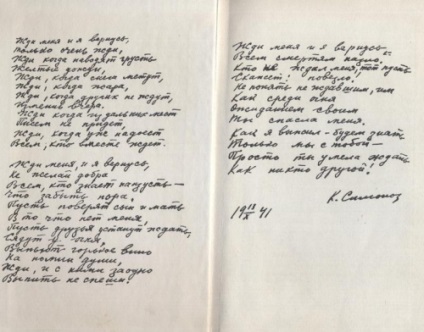 Жди меня и я вернусь,
Только очень жди,
Жди когда наводят грусть
Желтые дожди,
Жди, когда снега метут,
Жди, когда жара,
Жди, когда других не ждут,
Изменив вчера.
Жди когда из дальних мест
Писем не придет,
Жди, когда уж надоест
Всем, кто вместе ждет.
Жди меня, и я вернусь,
Не желай добра
Всем, кто знает наизусть—
Что забыть пора.
Пусть поверят сын и мать
В то что нет меня,
Пусть друзья устанут ждать,
Сядут у огня,
Выпьют горькое вино
На помин души,
Жди, и с ними заодно
Выпить не спеши.
Жди меня и я вернусь,
Всем смертям назло.
Кто не ждал меня, тот пусть
Скажет: повезло!
Не понять не ждавшим, им
Как среди огня
Ожиданием своим
Ты спасла меня.
Как я выжил - будем знать
Только мы с тобой—
Просто ты умела ждать
Как никто другой!
К. Симонов
19 41